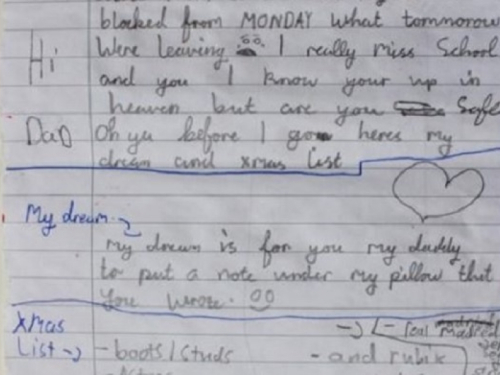 blocked from MONDAY What tommorow
Were leaving I really miss School
Hi and you I know your up in
heaven but are you Safe
DaD Oh ya before I go heres my
dream and xmas list
My dream
my dream is for you my daddy
to put a note under my pillow that
you wrote.
xmas
List - boots/studs - and rubix
- real